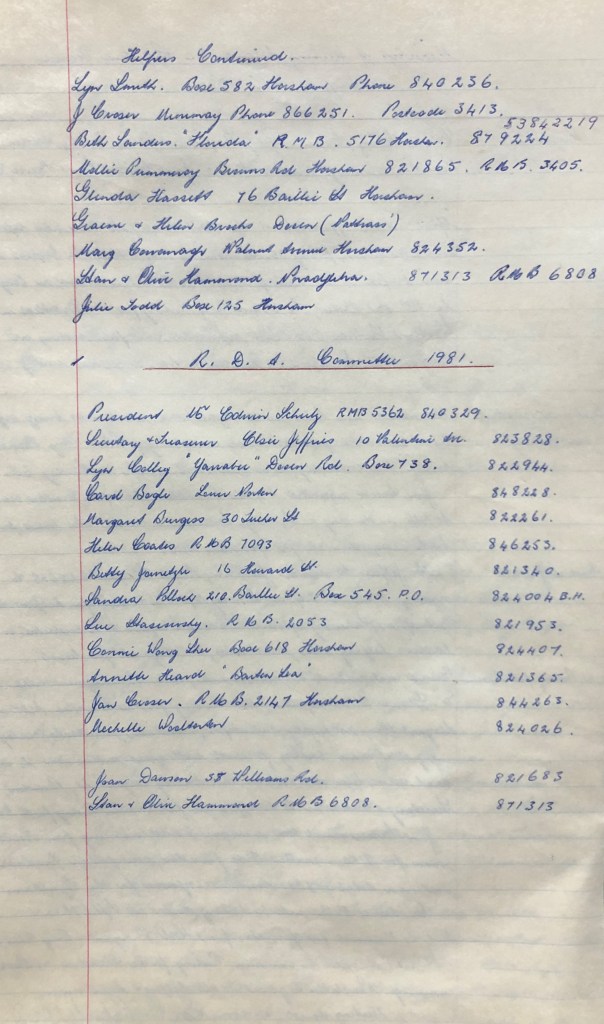 Helpers Continued.
Lyn Smith. Box 582 Horsham Phone 840236.
J Croser Murray Phone 866251. Postcode 3413.
53842219
Beth Sanders. "Florida" R.M.B. 5176 Horsham. 879224
Mollie Pummeroy Browns Rd Horsham 821865. RMB. 3405.
Glenda Hassett 76 Baillie St Horsham.
Graeme & Helen Brooks Dooen
Marg Cavanagh Walnut Avenue Horsham 824352.
Stan & Olive Hammond. 871313 RMB 6808
Julie Todd Box 125 Horsham
R. D. A. Committee 1981.
President Mr Edwin Schulz RMB 5362 840329.
Secretary & Treasurer Elsie Jeffries 10 Valentine Ave. 823828.
Lyn Colley "Yarrabee" Dooen Rd. Box 738. 822944.
Carol Bogle Lower Norton 848228.
Margaret Burgess 30 St 822261.
Helen Coates RMB 7093 846253.
Betty 16 Howard St. 821340.
Sandra Pollock 210. Baillie St. Box 545. P.O. 824004 B.H.
Sue R.M.B. 2053 821953.
Connie Wong Shee Box 618 Horsham 824407.
Annette Heard "Barton Lea" 821365.
Jan Crosser. R.M.B. 2147 Horsham 844263.
Mechelle 824026.
Joan Dawson 58 Williams Rd. 821683
Stan & Olive Hammond RMB 6808. 871313